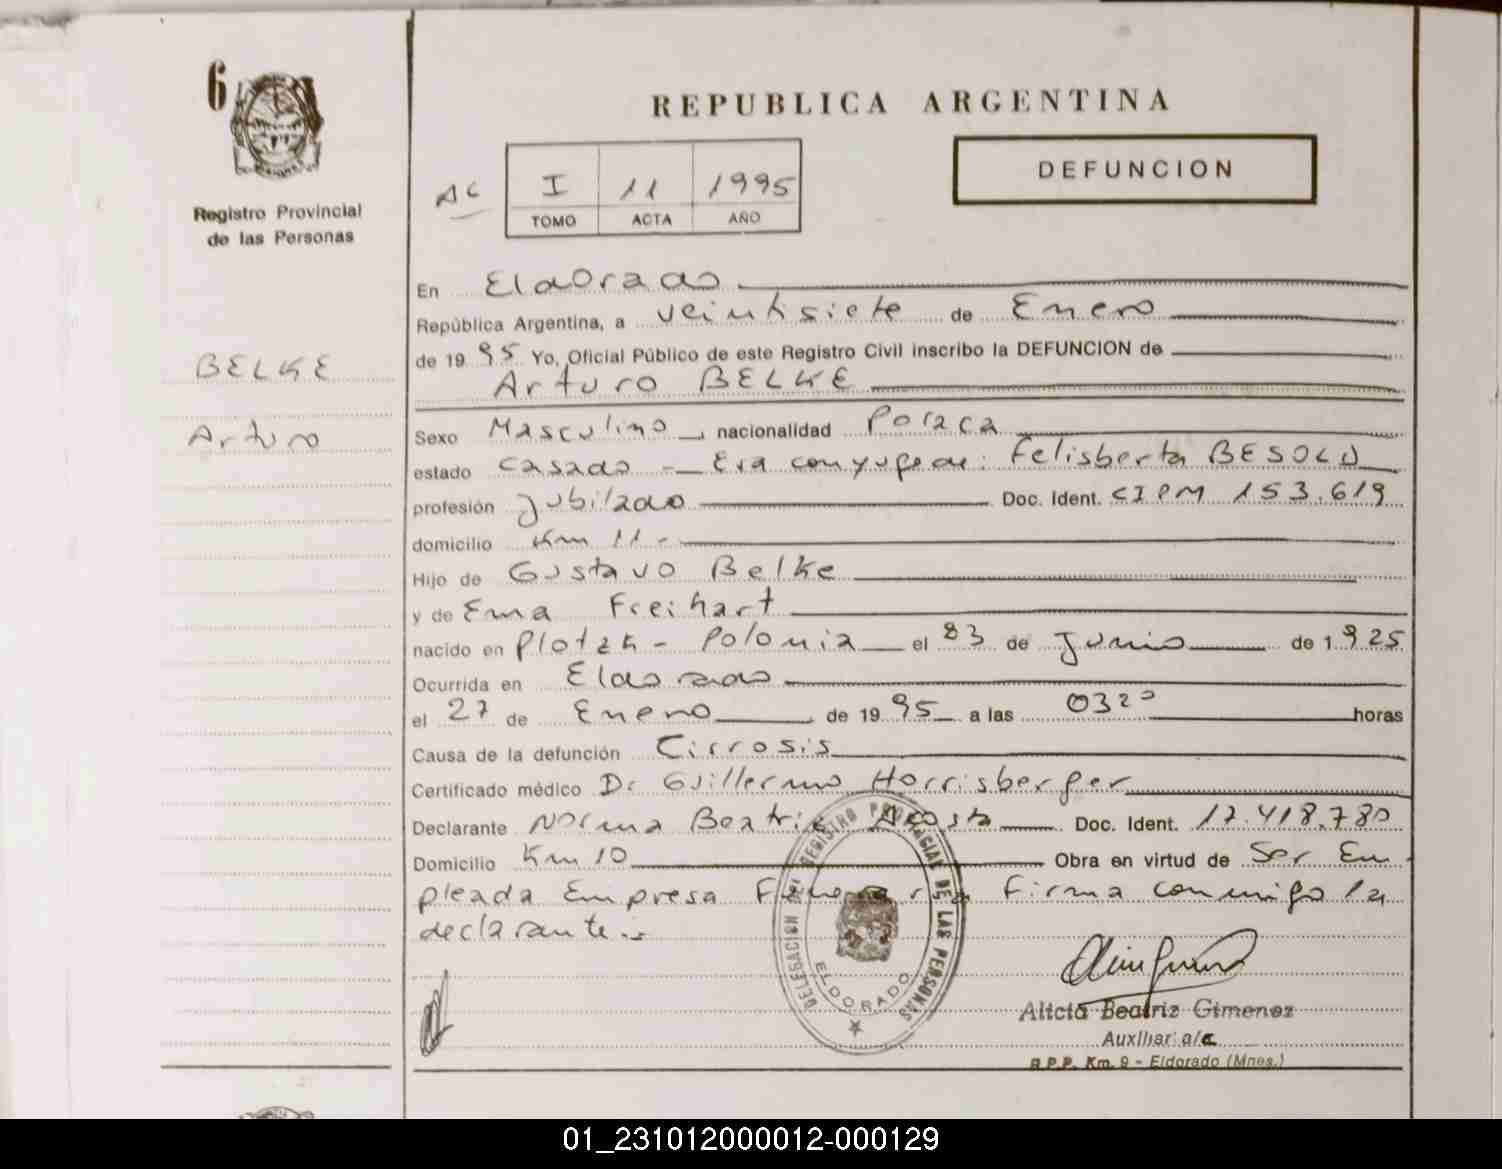 6
Registro Provincial
de las Personas
BELKE
Arturo
REPUBLICA ARGENTINA
DEFUNCION
AC I 11 1995
TOMO ACTA AÑO
En Eldorado
República Argentina, a veintisiete de Enero
de 1995 Yo, Oficial Público de este Registro Civil inscribo la DEFUNCION de
Arturo BELKE
Sexo Masculino, nacionalidad Polaca
estado casado - Era conyuge de: Felisberta BESOLD
profesión Jubilado Doc. Ident. CIPM 153.619
domicilio Km 11 -
Hijo de Gustavo Belke
y de Ema Freihart
nacido en Plotzk - Polonia el 03 de Junio de 1925
Ocurrida en Eldorado
el 27 de Enero de 1995 a las 0320 horas
Causa de la defunción Cirrosis
Certificado médico Dr Guillermo Horrisberger
Declarante Norma Beatriz Acosta Doc. Ident. 17.418.780
Domicilio Km 10 Obra en virtud de Ser Em
pleada Empresa Funeraria Firma conmigo la
declarante.-
DELEGACION DEL REGISTRO PROVINCIAL DE LAS PERSONAS
ELDORADO
Alicia Beatriz Gimenez
Auxiliar a/c
R.P.P. Km. 9 - Eldorado (Mnes.)
01_231012000012-000129